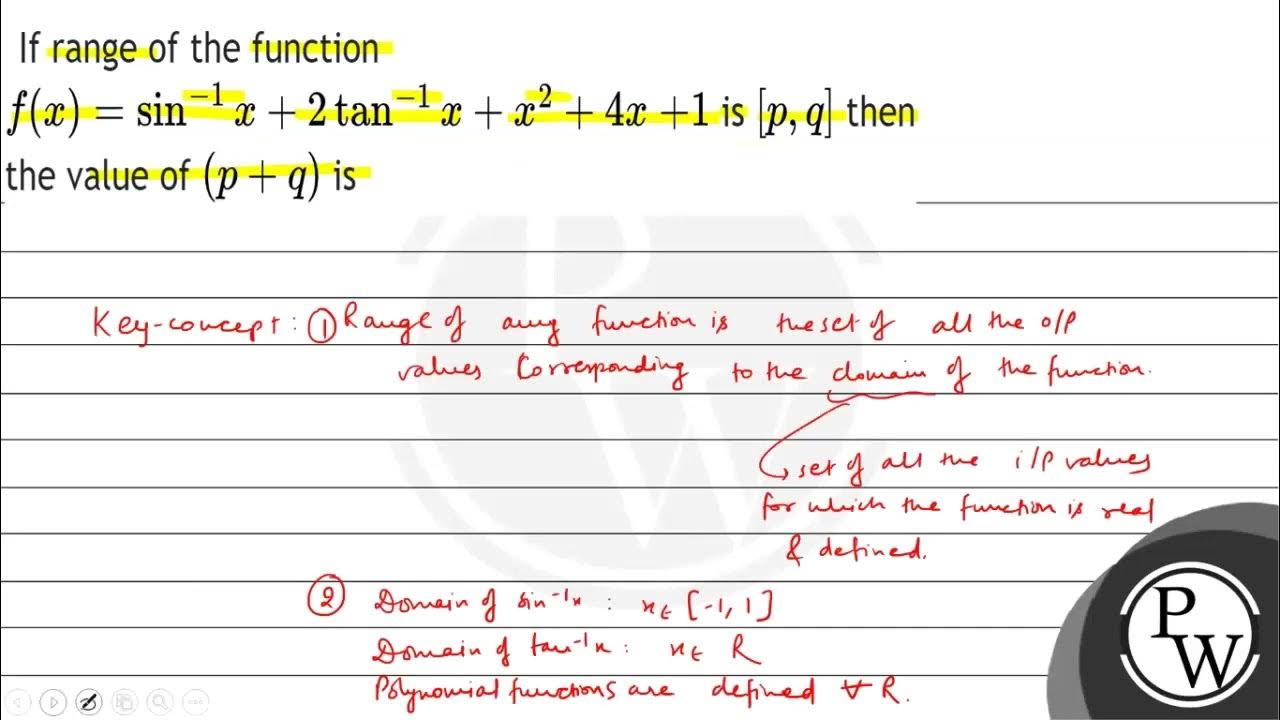 If range of the function
f(x) = sin⁻¹ x + 2 tan⁻¹ x + x² + 4x + 1 is [p, q] then
the value of (p + q) is
Key-concept: ① Range of any function is the set of all the o/p
values Corresponding to the domain of the function.
set of all the i/p values
for which the function is real
& defined.
② Domain of sin⁻¹x : x ∈ [-1, 1]
Domain of tan⁻¹x : x ∈ R
Polynomial functions are defined ∀ R.
P
W
P
W